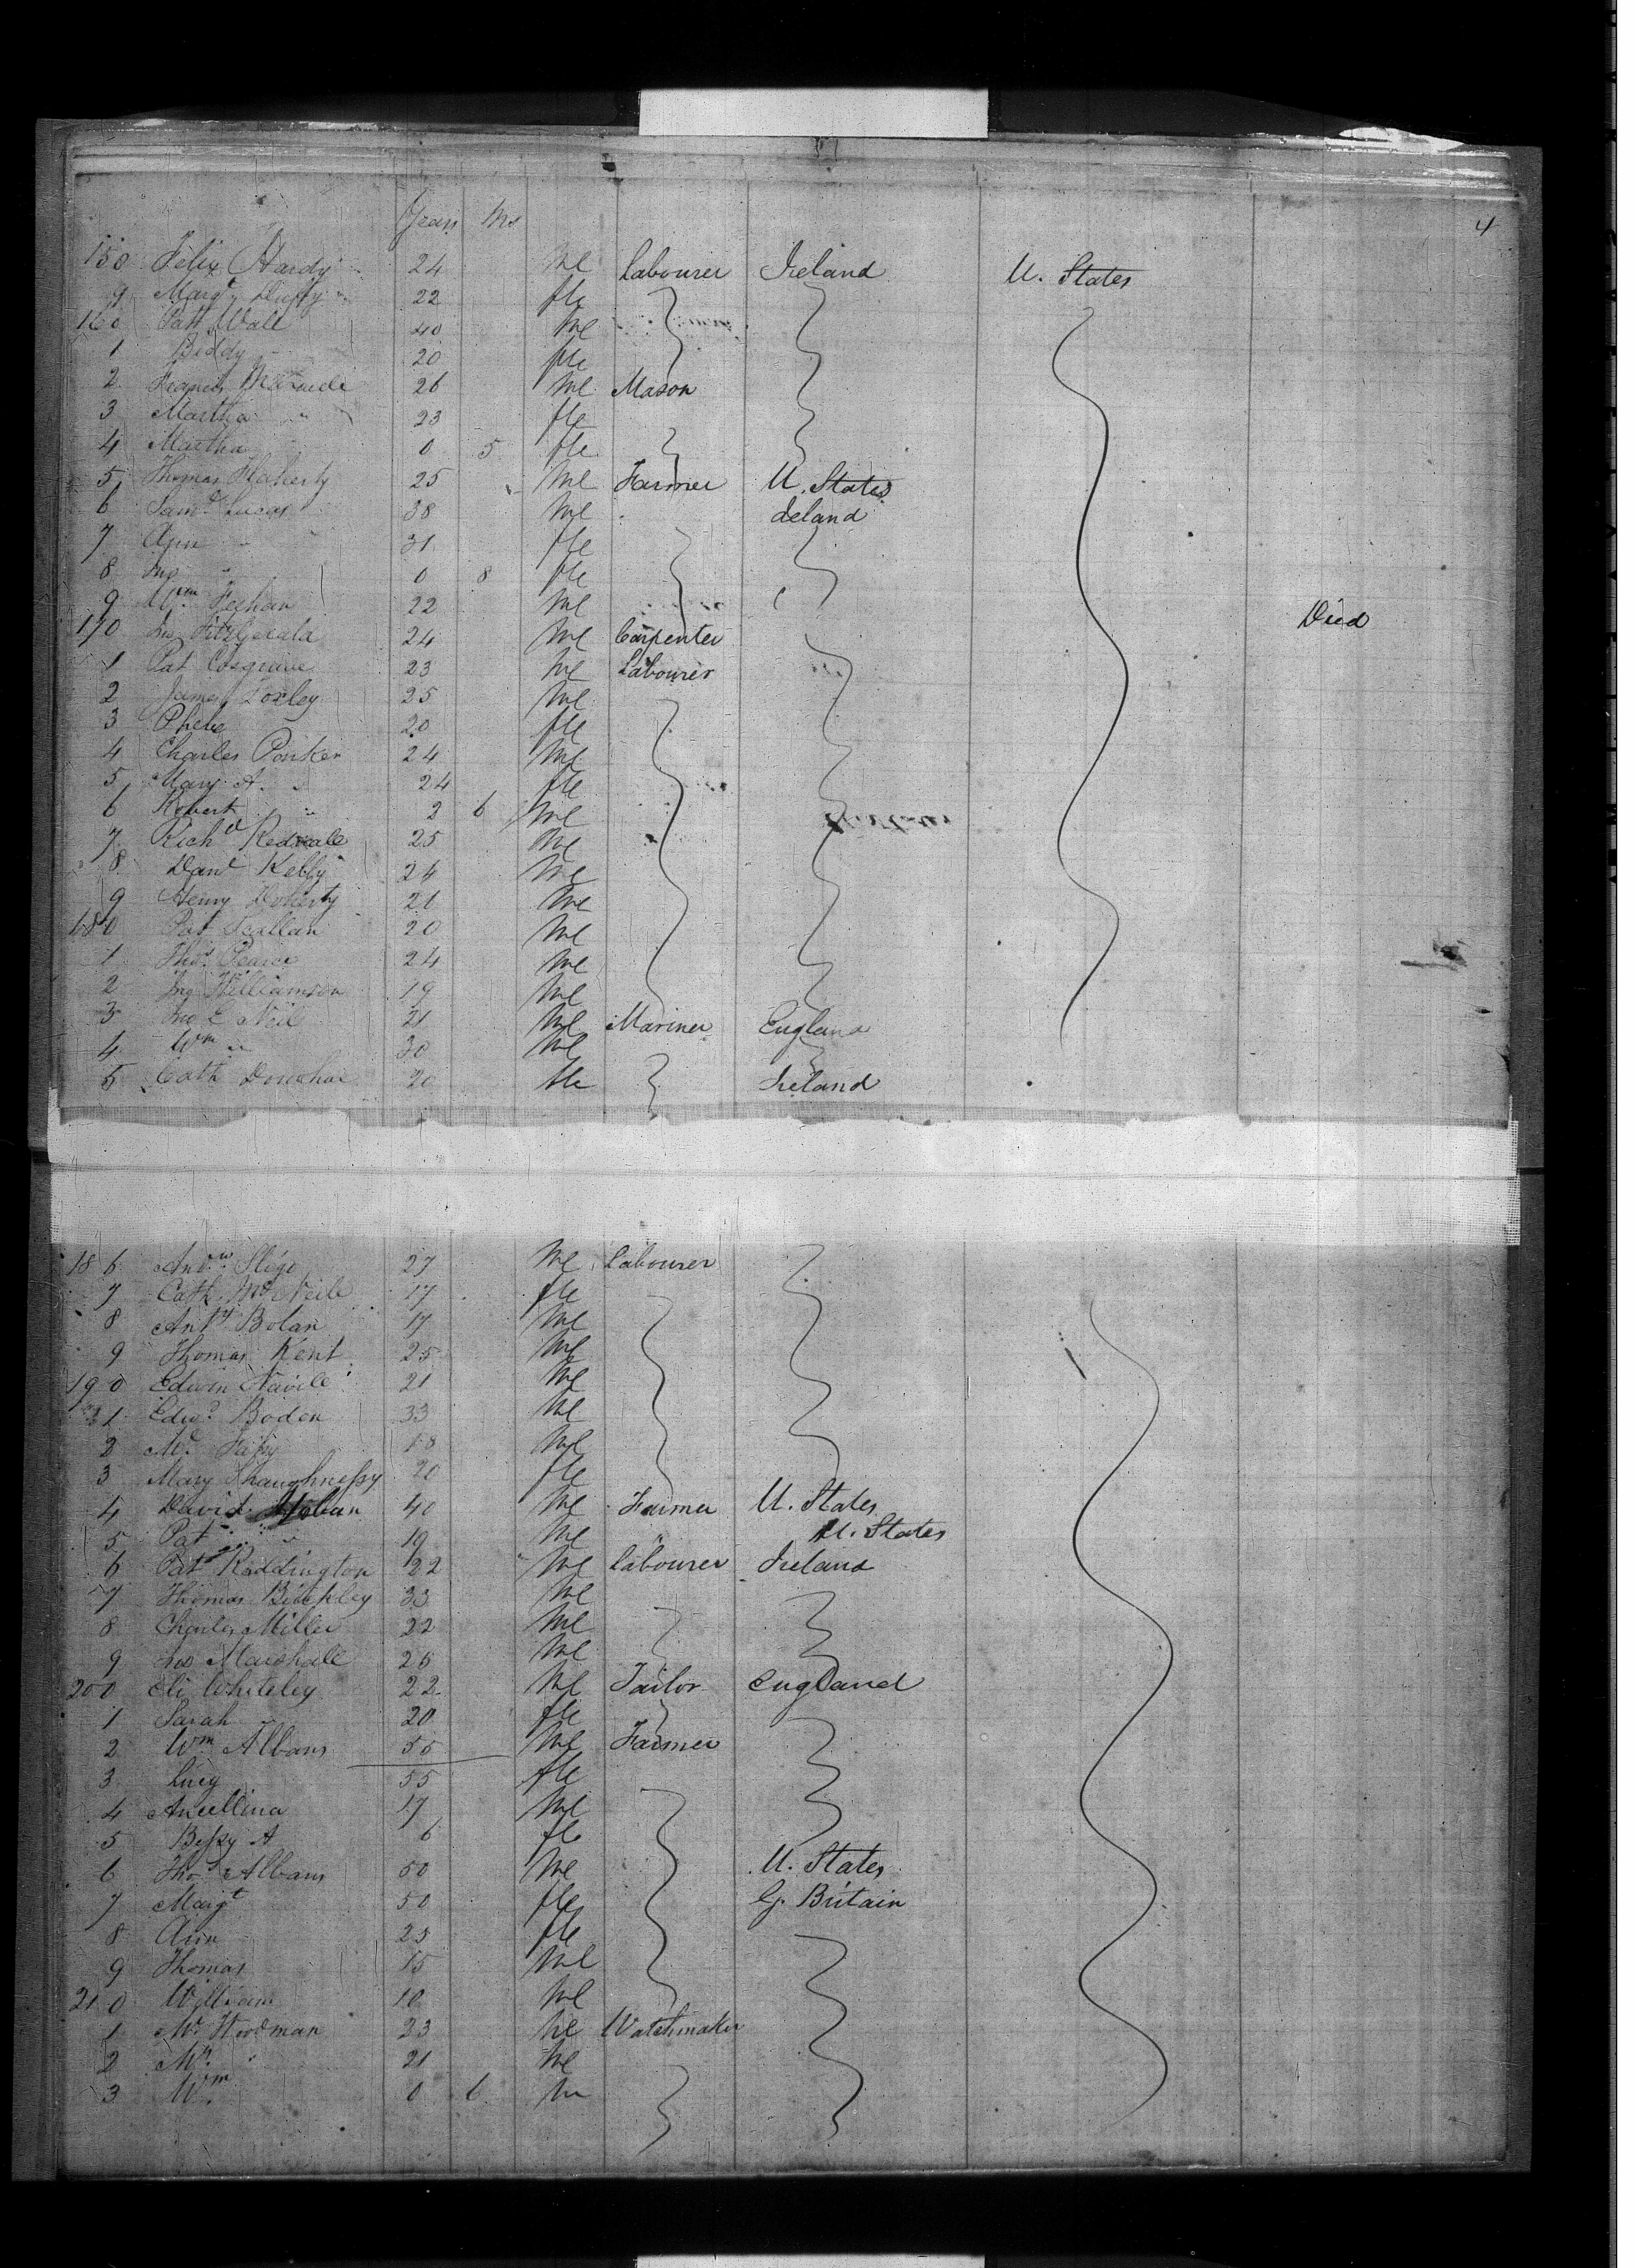 Years Ms
4
158 Felix Hardy " 24 Me Labourer Ireland U. States
9 Margt Duffy " 22 fle
160 Patt Wall 40 Me
1 Biddy " 20 fle
2 Francis 26 Me Mason
3 Martha " 23 fle
4 Martha " 0 5 fle
5 Thomas Flaherty 25 Me Farmer U. States
6 Saml Lucas 38 Me Ireland
7 Ann " " 31 fle
8 Jno " 0 8 fle
9 Wm Feehan 22 Me Died
170 Jno Fitzgerald 24 Me Carpenter
1 Pat Cosgrave 23 Me Labourer
2 James Loxley 25 Me
3 Phebe 20 fle
4 Charles Ponker 24 Me
5 Mary A. " 24 fle
6 Robert " " 2 6 Me
7 Richd 25 Me
8 Danl Kelly 24 Me
9 Henry Doherty 21 Me
180 Pat Scallan 20 Me
1 Thos Pearce 24 Me
2 Jno Williamson 19 Me
3 Jno E Neil 21 Me Mariner England
4 Wm " 30 Me
5 Cath Donohue 20 fle Ireland
186 Andw Sligo 27 Me Labourer
7 Cath McNeile 17 fle
8 Anty Bolan 17 Me
9 Thomas Kent 25 Me
190 Edwin Navile 21 Me
1 Edwd Boden 33 Me
2 Ml Fahy 18 Me
3 Mary Shaughnessy 20 fle
4 David 40 Me Farmer U. States
5 Pat " " 19 Me " U. States
6 Pat Raddington 22 Me Labourer Ireland
7 Thomas 33 Me
8 Charles Miller 22 Me
9 Jno Marshall 26 Me
200 Eli Whiteley 22 Me Tailor England
1 Sarah " 20 fle
2 Wm Albans 55 Me Farmer
3 Lucy 55 fle
4 Ancellina 17 Me
5 Bessy A 6 fle
6 Thos Albans 50 Me U. States
7 Margt 50 fle G. Britain
8 Ann 25 fle
9 Thomas 15 Me
210 William 10 Me
1 Mr Woodman 23 Me Watchmaker
2 Mrs " 21 Me
3 Wm 0 6 M